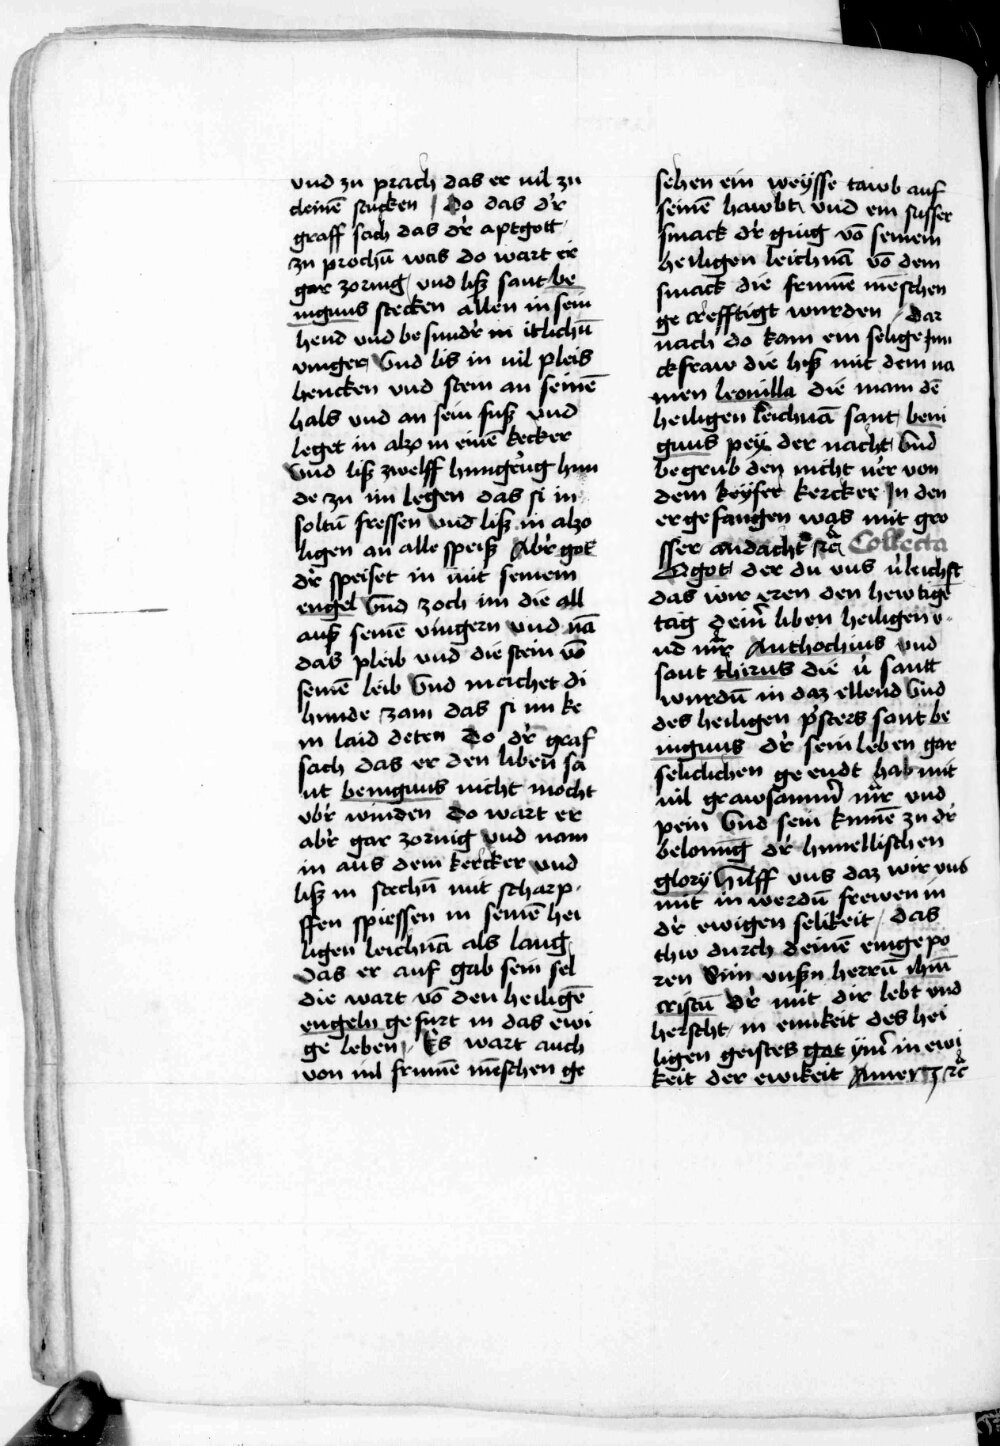 vnd zu prach das er uil zu
cleinē stucken / Do das d'r
graff sach das d'r aptgott
zu prochū was do wart er
gar zornig vnd liß sant be
nignus stecken allen in sein
hend vnd besund'r in itlichū
vinger Vnd lis in uil pleis
hencken vnd stein an seinē
hals vnd an sein fuß vnd
leget in alzo in einē kecker
Vnd liß zwelff hungrūg hun
de zu im legen das si in
soltū fressen vnd liß in alzo
ligen an alle speiß Ab'r got
d'r speiset in mit seinem
engel Vnd zoch im die all
auß seinē vingern vnd nā
das pleib vnd die stein vō
seinē leib Vnd machet di
hunde zam das si im ke
in laid deten Do d'r graf
sach das er den liben sa
nt benignus nicht mocht
vb'r winden Do wart er
ab'r gar zornig vnd nam
in aus dem kercker vnd
liß in stechū mit scharp
ffen spiessen in seinē hei
ligen leichnā als lang
das er auf gab sein sel
die wart vō den heiligē
engeln gefurt in das ewi
ge leben / Es wart auch
von uil frumē mēschen ge
sehen ein weysse tawb auf
seinē hawbt vnd ein susser
smack d'r ging vō seinem
heiligen leichnā vō dem
smack die frumē mēschen
ge crefftigt wurden / Dar
nach do kam ein selige Jun
ckfraw die hiß mit dem na
men leonilla die nam dē
heiligen leichnā sant beni
gnus pey der nacht Vnd
begrub den nicht v'er von
dem keyser kercker In den
er gefangen was mit gro
sser andacht rc̄ Collecta
O got der du vns v'leichst
das wir eren den hewtigē
tag dein' liben heiligen v
nd m'r Anthochius vnd
sant thirus die v' sant
wurdū in daz ellend Vnd
des heiligen p'sters sant be
nignus d'r sein leben gar
seliclichen ge endt hab mit
uil grawsamm' m'r vnd
pein Vnd sein kumē zu d'r
belonūg d'r himellischen
glory Hilff vns daz wir vns
mit in werdū frewen in
d'r ewigen selikeit / das
thw durch deinē eingepo
ren Sun vnßn herrū ihm̄
cristū d'r mit dir lebt vnd
herscht in einikeit des hei
ligen geistes got ym' in ewi
keit der ewikeit Amen rc̄